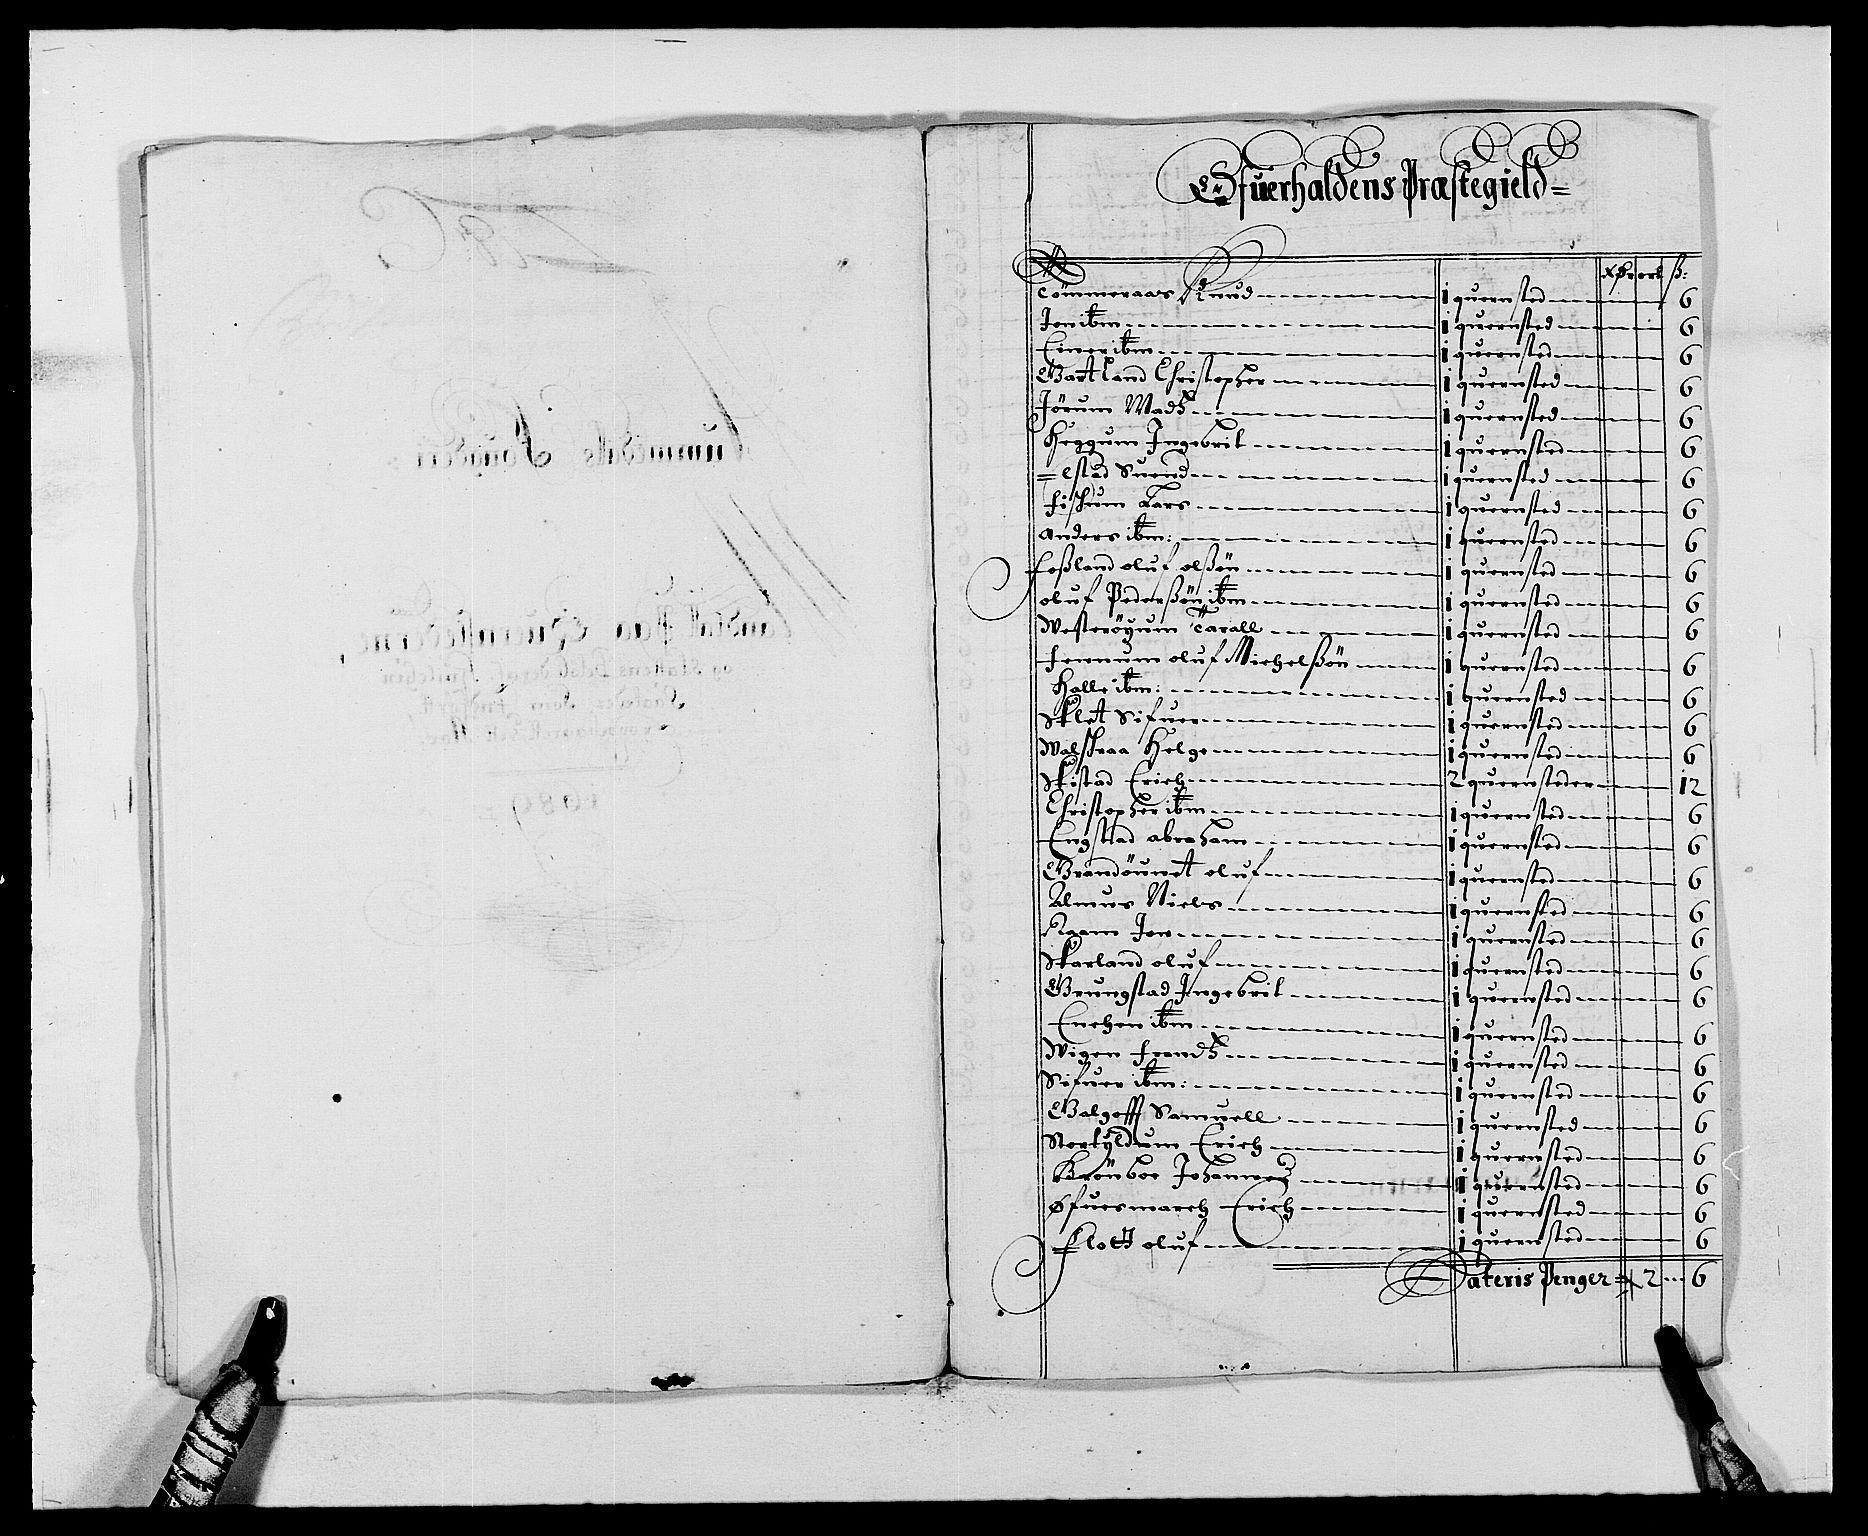 Offuerhaldens Præstegield=
ort ß:
Tömmeraas Knud 1 quernsted 6
Jon ibm 1 quernsted 6
Einer ibm 1 quernsted 6
Gartland Christopher 1 quernsted 6
Jörum Madz 1 quernsted 6
Heggum Ingebrit 1 quernsted 6
Elstad Suend 1 quernsted 6
Fischum Lars 1 quernsted 6
Anders ibm: 1 quernsted 6
Foßland oluf olßön 1 quernsted 6
oluf Pederßön ibm 1 quernsted 6
Westeröyum Tarall 1 quernsted 6
Fremum oluf Michelßön 1 quernsted 6
Halle ibm: 1 quernsted 6
Sklet Sifuer 1 quernsted 6
Walskraa Helge 1 quernsted 6
Skistad Erich 2 quernsteder 12
Christopher ibm 1 quernsted 6
Engstad abraham 1 quernsted 6
Grandöunet oluf 1 quernsted 6
Almus Niels 1 quernsted 6
Raam Jon 1 quernsted 6
Skarland oluf 1 quernsted 6
Grungstad Ingebrit 1 quernsted 6
Enchen ibm 1 quernsted 6
Wigen Frendz 1 quernsted 6
Sifuer ibm: 1 quernsted 6
Galgefff Samuell 1 quernsted 6
Storkyldum Erich 1 quernsted 6
Grönboe Johannes 1 quernsted 6
Øfuermarch Erich 1 quernsted 6
Flott oluf 1 quernsted 6
Lateris Penger = 2 ... 6